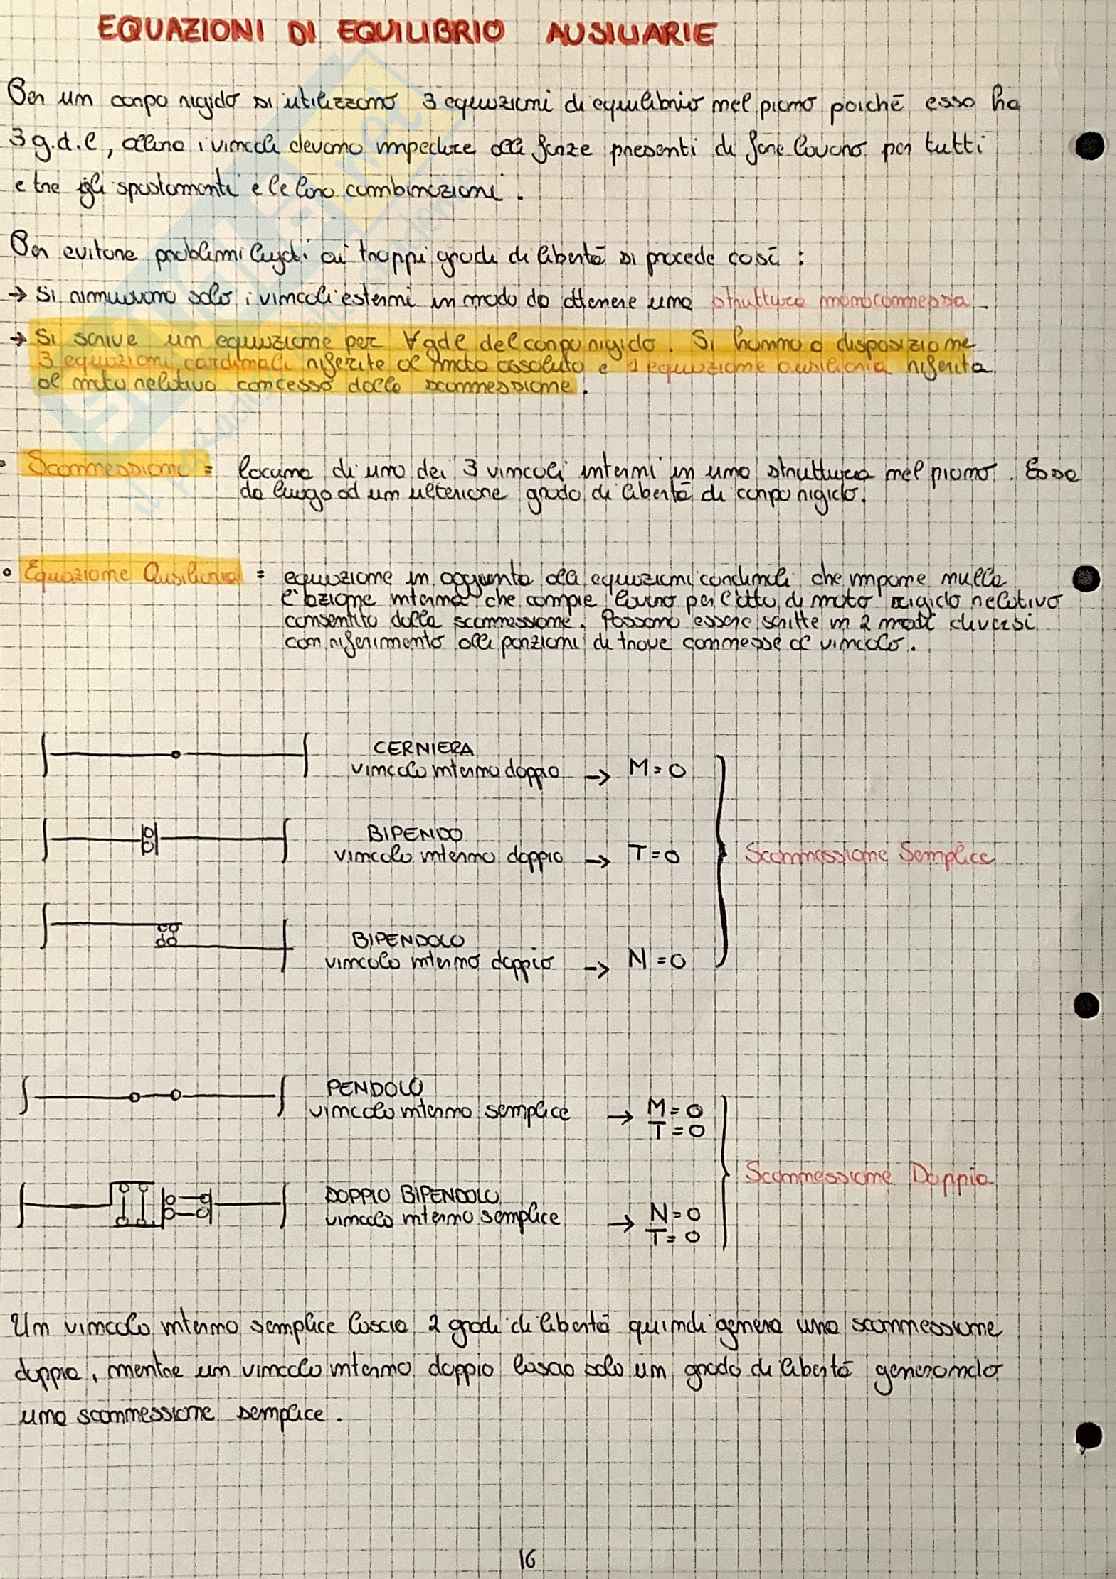 EQUAZIONI DI EQUILIBRIO AUSILIARIE
Per un corpo rigido si utilizzano 3 equazioni di equilibrio nel piano poiché esso ha
3 g.d.l, allora i vincoli devono impedire alle forze presenti di fare lavoro per tutti
e tre gli spostamenti e le loro combinazioni.
Per evitare problemi legati ai troppi gradi di libertà si procede così:
→ Si rimuovono solo i vincoli esterni in modo da ottenere una struttura monoconnessa.
→ Si scrive un equazione per ∀ gdl del corpo rigido. Si hanno a disposizione
3 equazioni cardinali riferite al moto assoluto e 1 equazione ausiliaria riferita
al moto relativo concesso dalla sconnessione.
• Sconnessione = lacuna di uno dei 3 vincoli interni in una struttura nel piano. Esse
da luogo ad un ulteriore grado di libertà di corpo rigido.
• Equazione Ausiliaria = equazione in aggiunta alle equazioni cardinali che impone nulla
l'azione interna che compie lavoro per l'atto di moto rigido relativo
consentito dalla sconnessione. Possono essere scritte in 2 modi diversi
con riferimento alle porzioni di trave connesse al vincolo.
CERNIERA
vincolo interno doppio → M=0
BIPENDO
vincolo interno doppio → T=0
Sconnessione Semplice
BIPENDOLO
vincolo interno doppio → N=0
PENDOLO
vincolo interno semplice → M=0
T=0
Sconnessione Doppia
DOPPIO BIPENDOLO
vincolo interno semplice → N=0
T=0
Un vincolo interno semplice lascia 2 gradi di libertà quindi genera una sconnessione
doppia, mentre un vincolo interno doppio lascia solo un grado di libertà generando
una sconnessione semplice.
16